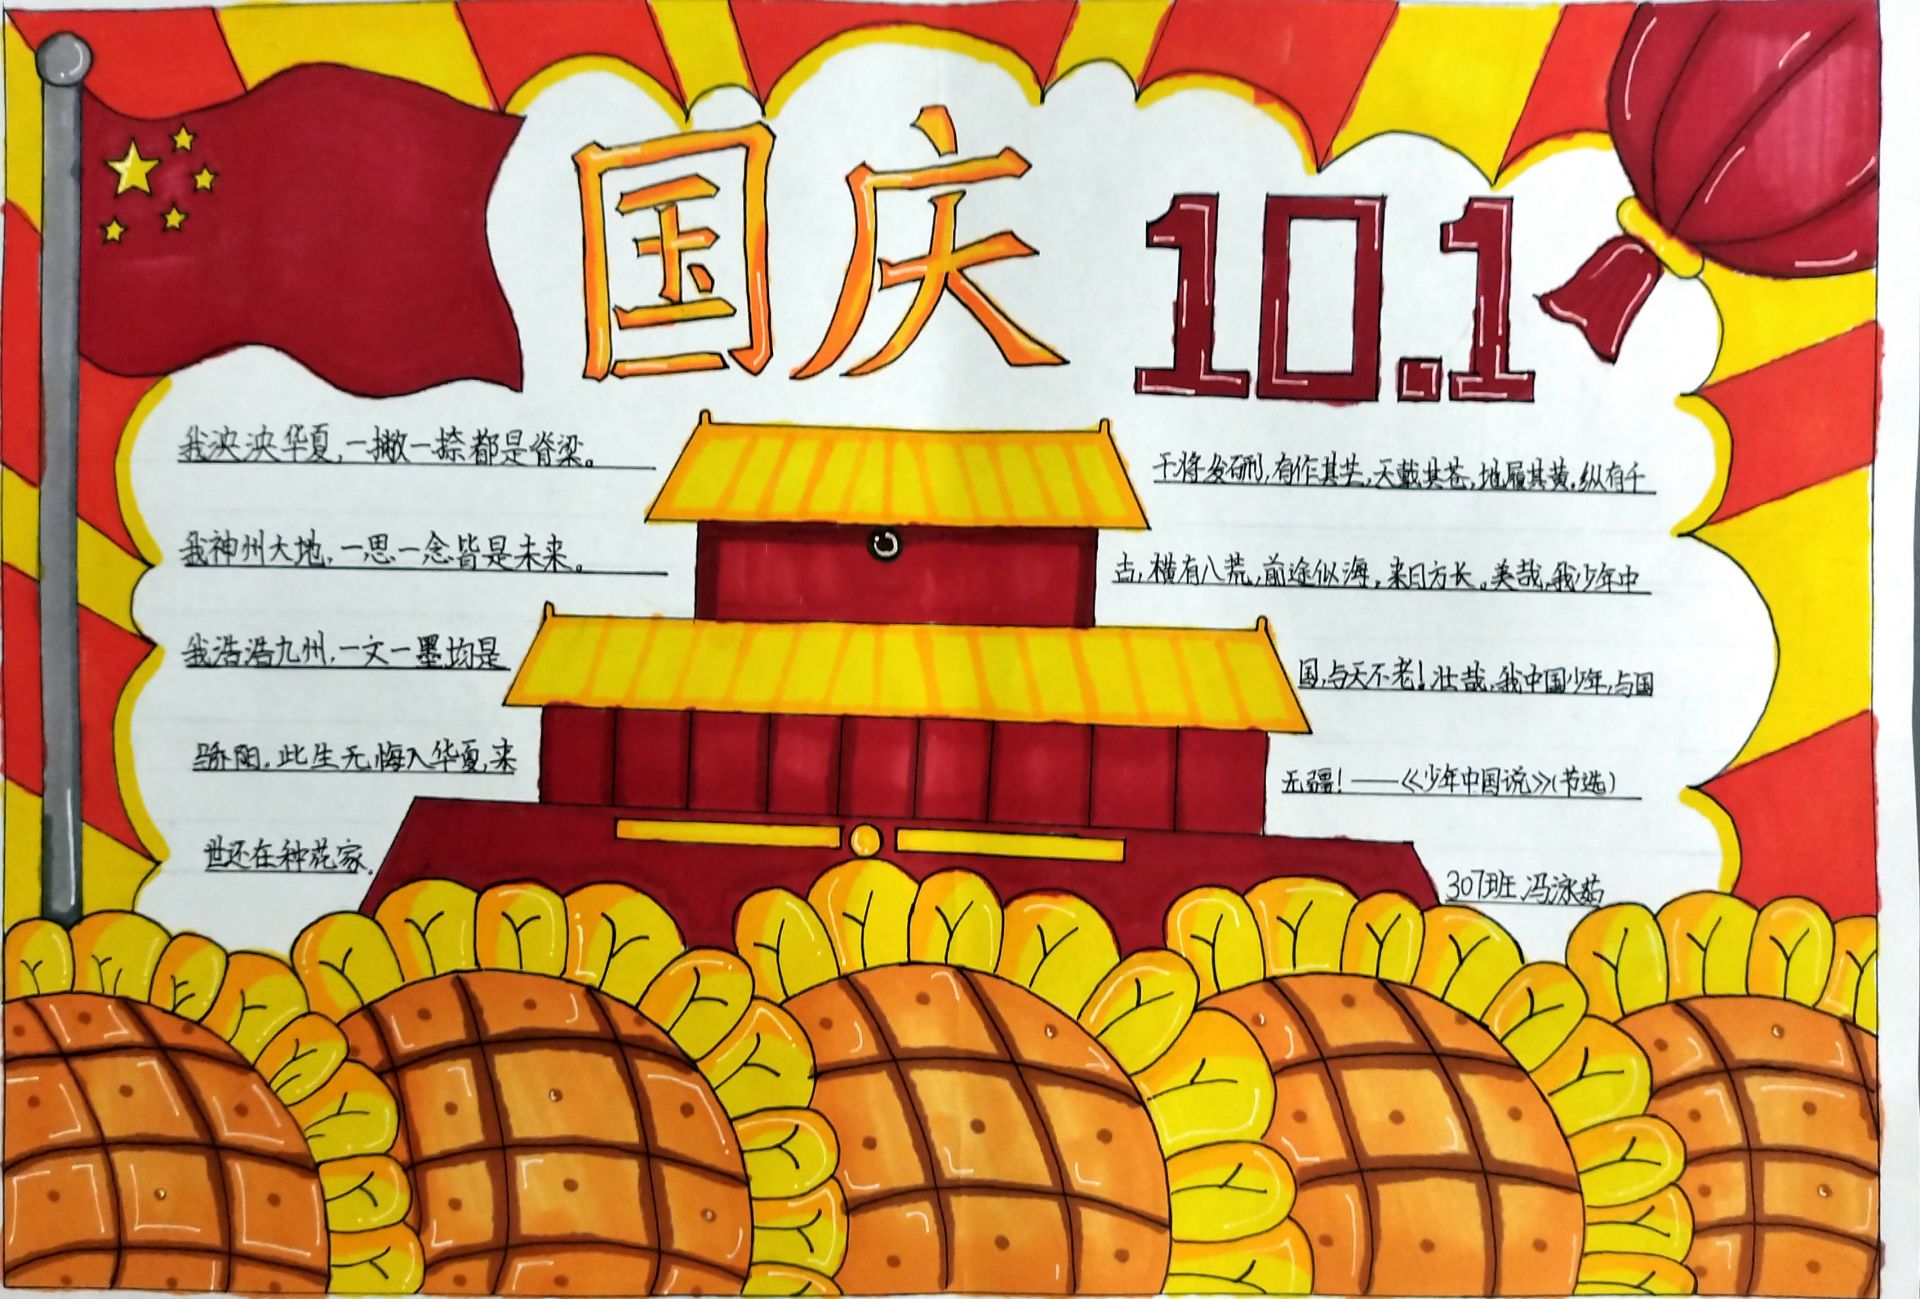 国庆 10.1
我泱泱华夏,一撇一捺都是脊梁。
我神州大地,一思一念皆是未来。
我浩浩九州,一文一墨均是
骄阳。此生无悔入华夏,来
世还在种花家。
干将发硎,有作其芒,天戴其苍,地履其黄.纵有千
古,横有八荒,前途似海,来日方长。美哉,我少年中
国,与天不老!壮哉,我中国少年,与国
无疆!——《少年中国说》(节选)
307班 冯泳茹